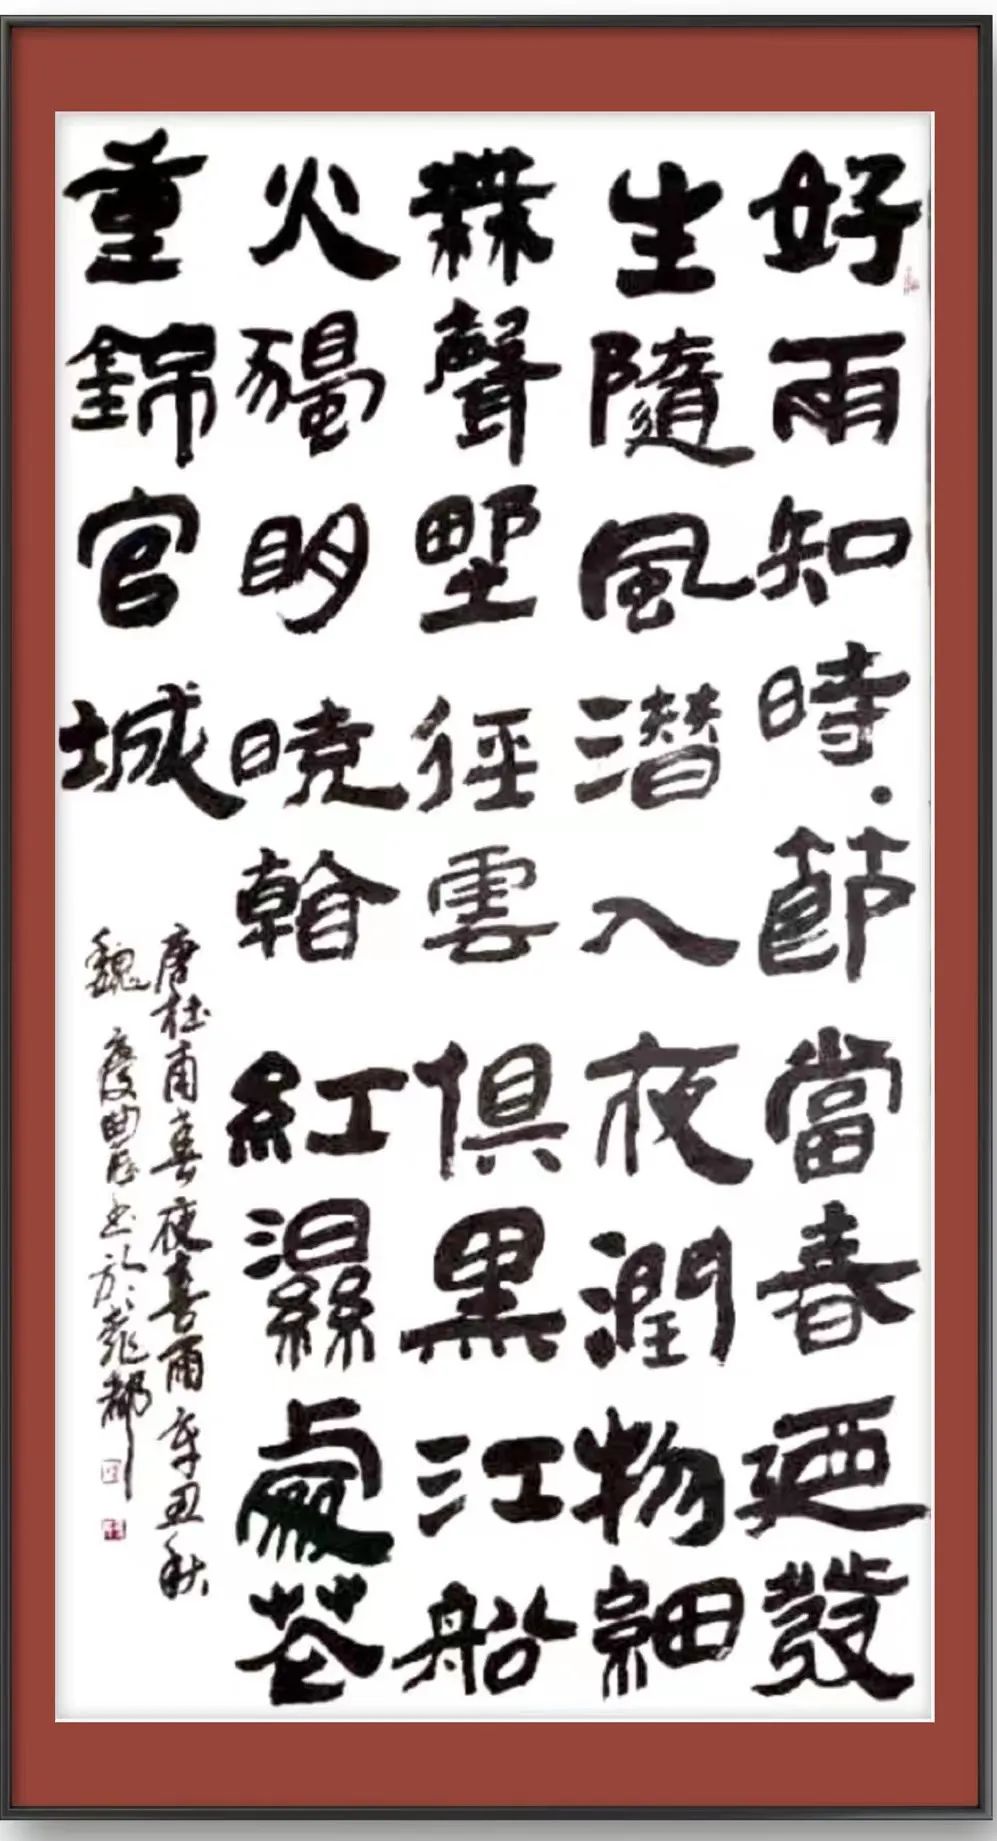 好雨知時節當春迺發
生隨風潛入夜潤物細
無聲野徑雲俱黑江船
火獨明曉看紅濕處花
重錦官城
唐杜甫春夜喜雨辛丑秋
魏 書於 都